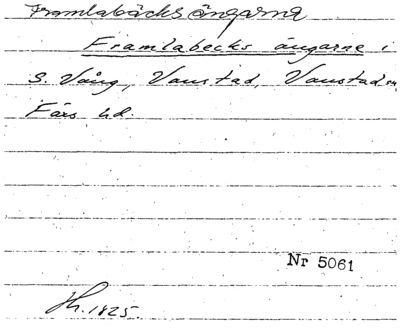 Framlabäcksängarna
Framlabecks ängarne i
S. Vång, Vanstad, Vanstad sn,
Färs hd.
Nr 5061
Sk. 1825.